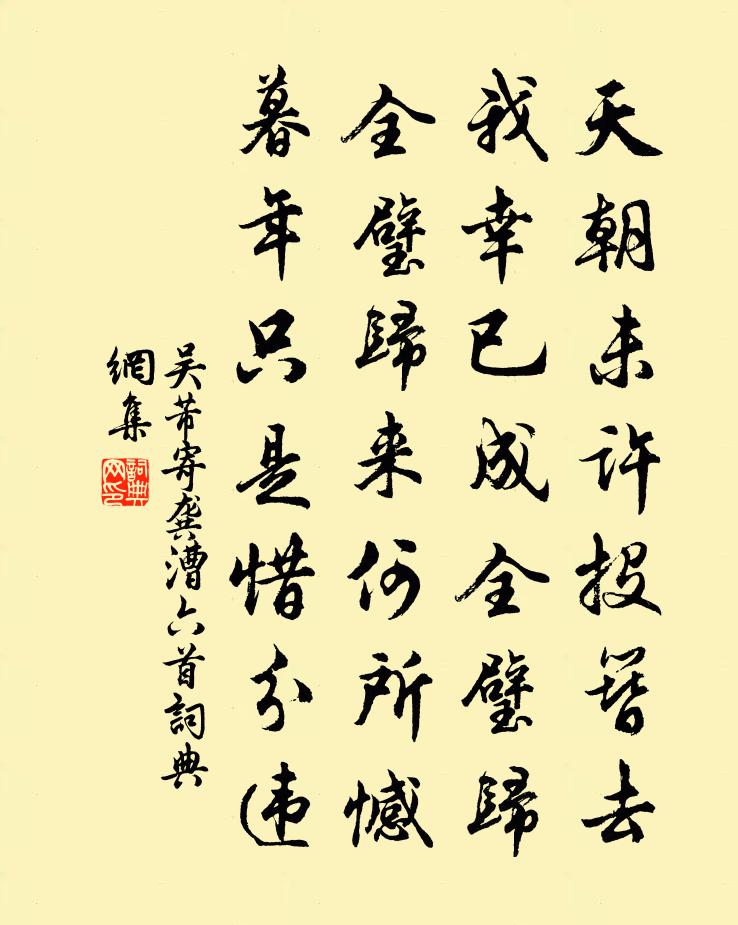 天朝未许投簪去
我幸已成全璧歸
全璧歸来何所憾
暮年只是惜分违
吴芾寄龚漕六首詞典
網集
詞典
网印